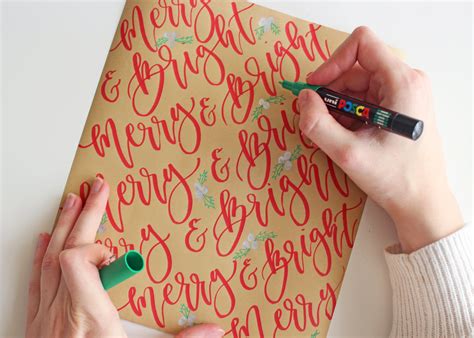 Merry
& Bright
Merry & Bright
Merry & Bright
Merry & Bright
Merry & Bright
uni POSCA